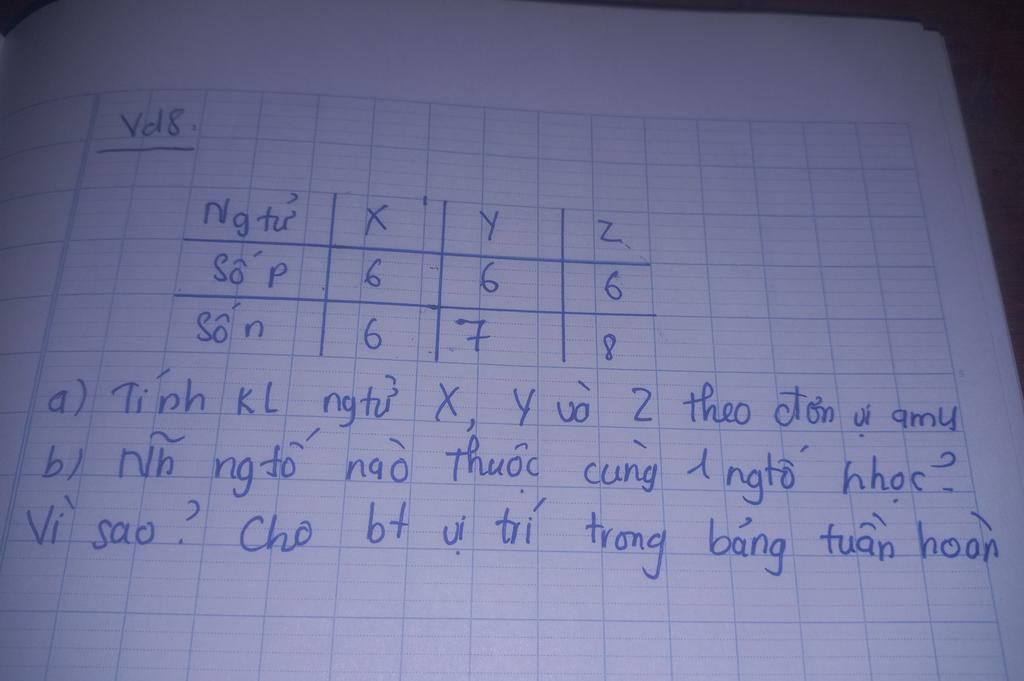 Vd8.
Ng tử X Y Z
Số p 6 6 6
Số n 6 7 8
a) Tính KL ng tử X, Y và Z theo đơn vị amu
b) Nh~ ng tố nào thuộc cùng 1 ng tố hhọc?
Vì sao? Cho bt vị trí trong bảng tuần hoàn